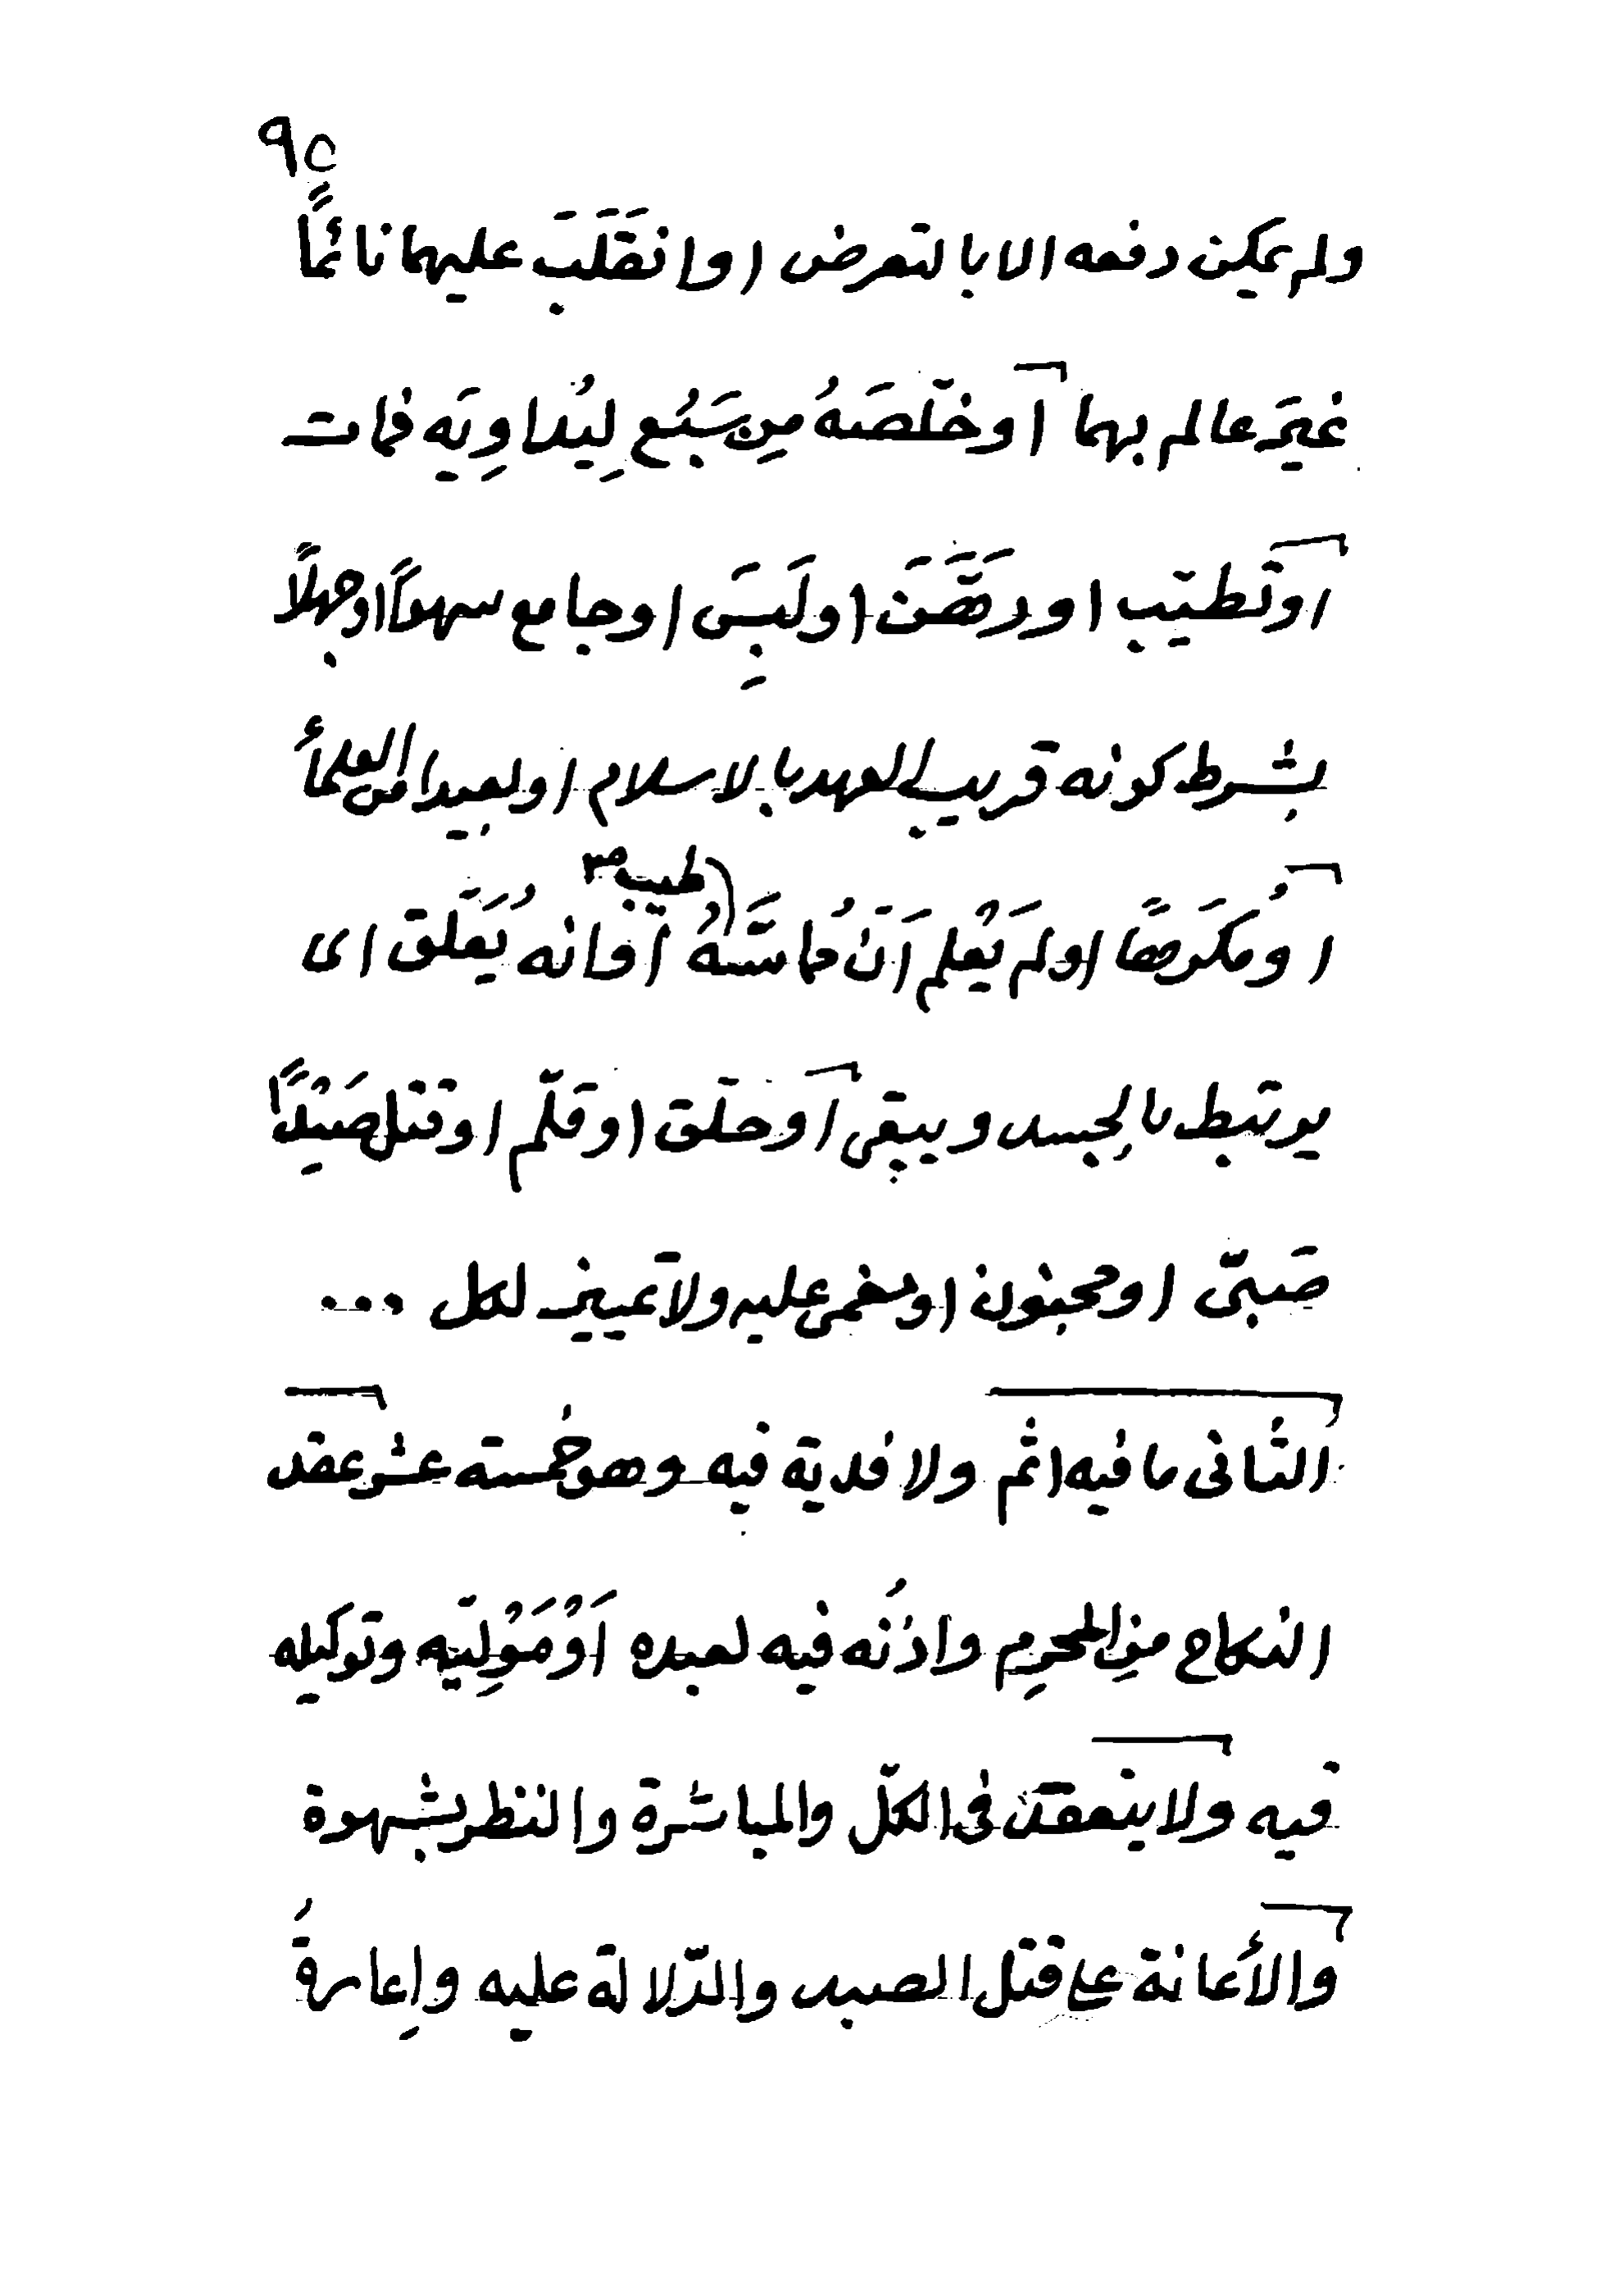 ٩٥
ولم يمكن دفعه الا بالتعرض او انقَلَبَ عليهما نائمًا
غيرَ عالم بهما أو خلّصَهُ مِن سَبُع لِيُداوِيَه فمات
او تَطيّب او دَهَّنَ او لَبِسَ او جامع سهواً او جهلاً
بشرط كونه قريب العهد بالاسلام او بعيدا من العلمأ
او مُكرَهًا او لم يَعْلم أنَّ مُماسَّهُ
طيب صح
أو انه يُعَلّق اى
يرتبط بالجسد ويبقى أو حلق او قلّم او قتل صَيْدًا
صَبىّ او مجنون او مغمى عليه ولا تمييز لكل ...
الثانى ما فيه اثم ولا فدية فيه وهو خُمسة عشر عقد
النكاح من المحرِم واذنُه فيه لعبده أوْ مَوْلِيّه وتوكيله
فيه ولا ينعقد فى الكلّ والمباشرة والنظر بشهوة
والأعانة على قتل الصيد والدّلالة عليه وإعارةُ